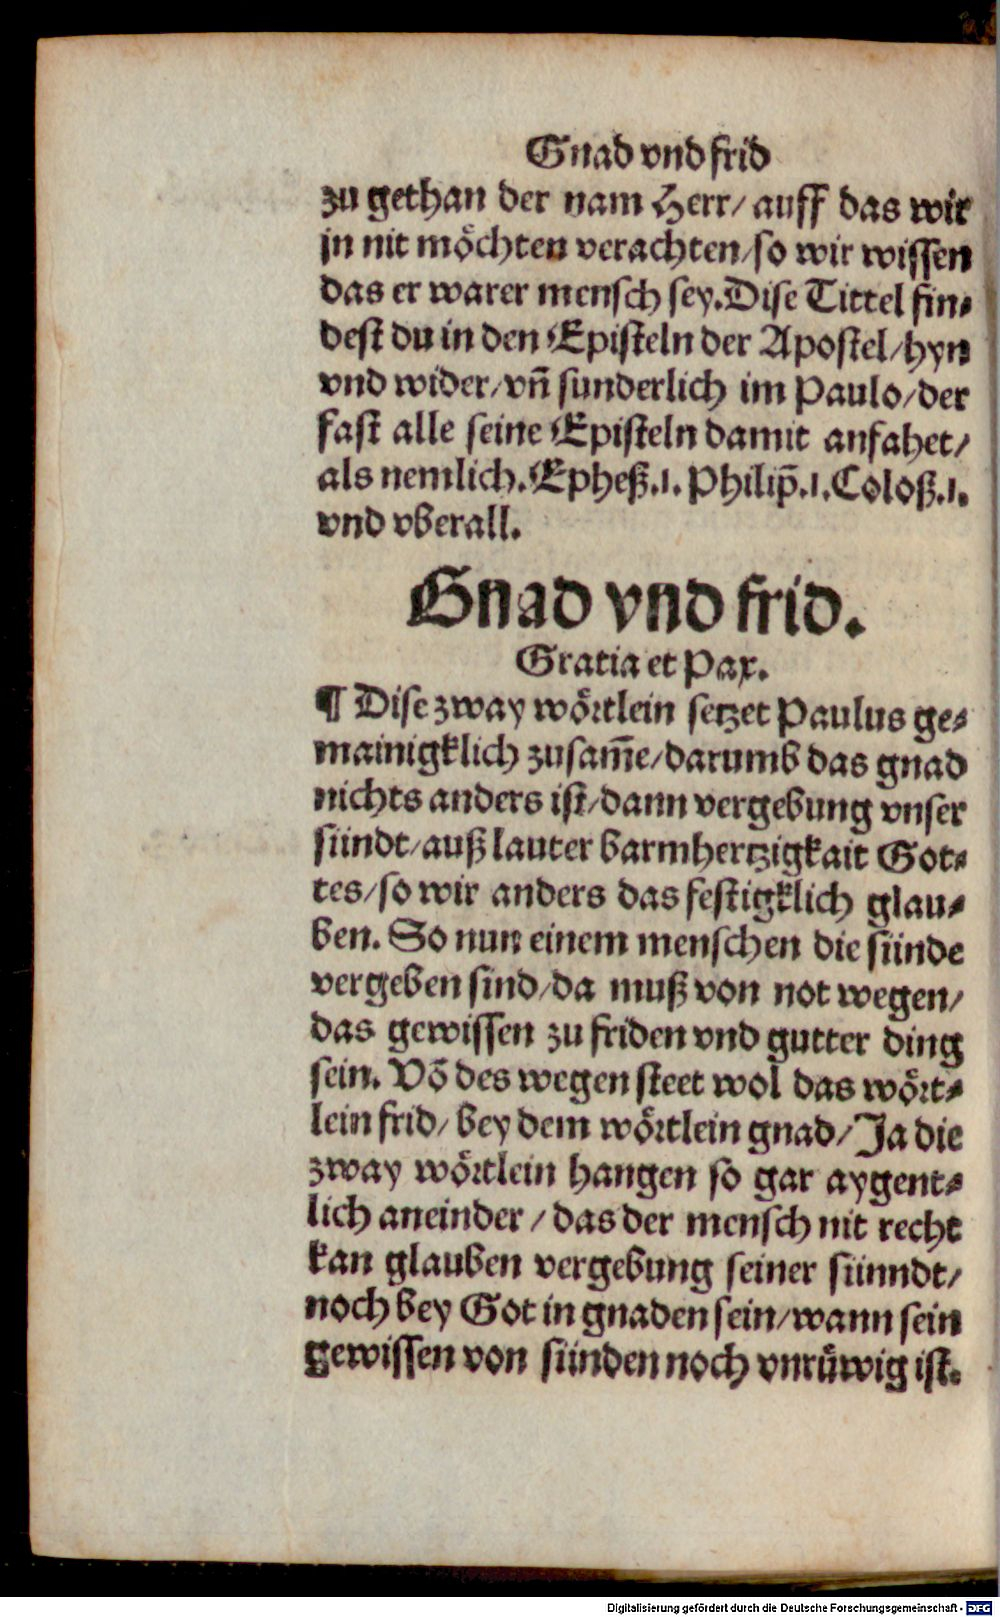 Gnad vnd frid
zu gethan der nam Herr/ auff das wir
jn nit möchten verachten/so wir wissen
das er warer mensch sey. Dise Tittel fin⸗
dest du in den Episteln der Apostel/hyn
vnd wider/vn̄ sunderlich im Paulo/der
fast alle seine Episteln damit anfahet/
als nemlich. Epheß.1. Philip̄.1. Coloß.1.
vnd vberall.
Gnad vnd frid.
Gratia et Pax.
¶ Dise zway wörtlein setzet Paulus ge⸗
mainigklich zusam̄e/darumb das gnad
nichts anders ist/dann vergebung vnser
sündt/auß lauter barmhertzigkait Got⸗
tes/so wir anders das festigklich glau⸗
ben. So nun einem menschen die sünde
vergeben sind/da muß von not wegen/
das gewissen zu friden vnd gutter ding
sein. Vō des wegen steet wol das wört⸗
lein frid/ bey dem wörtlein gnad/ Ja die
zway wörtlein hangen so gar aygent⸗
lich aneinder / das der mensch nit recht
kan glauben vergebung seiner sünndt/
noch bey Got in gnaden sein/wann sein
gewissen von sünden noch vnrüwig ist.
Digitalisierung gefördert durch die Deutsche Forschungsgemeinschaft - DFG